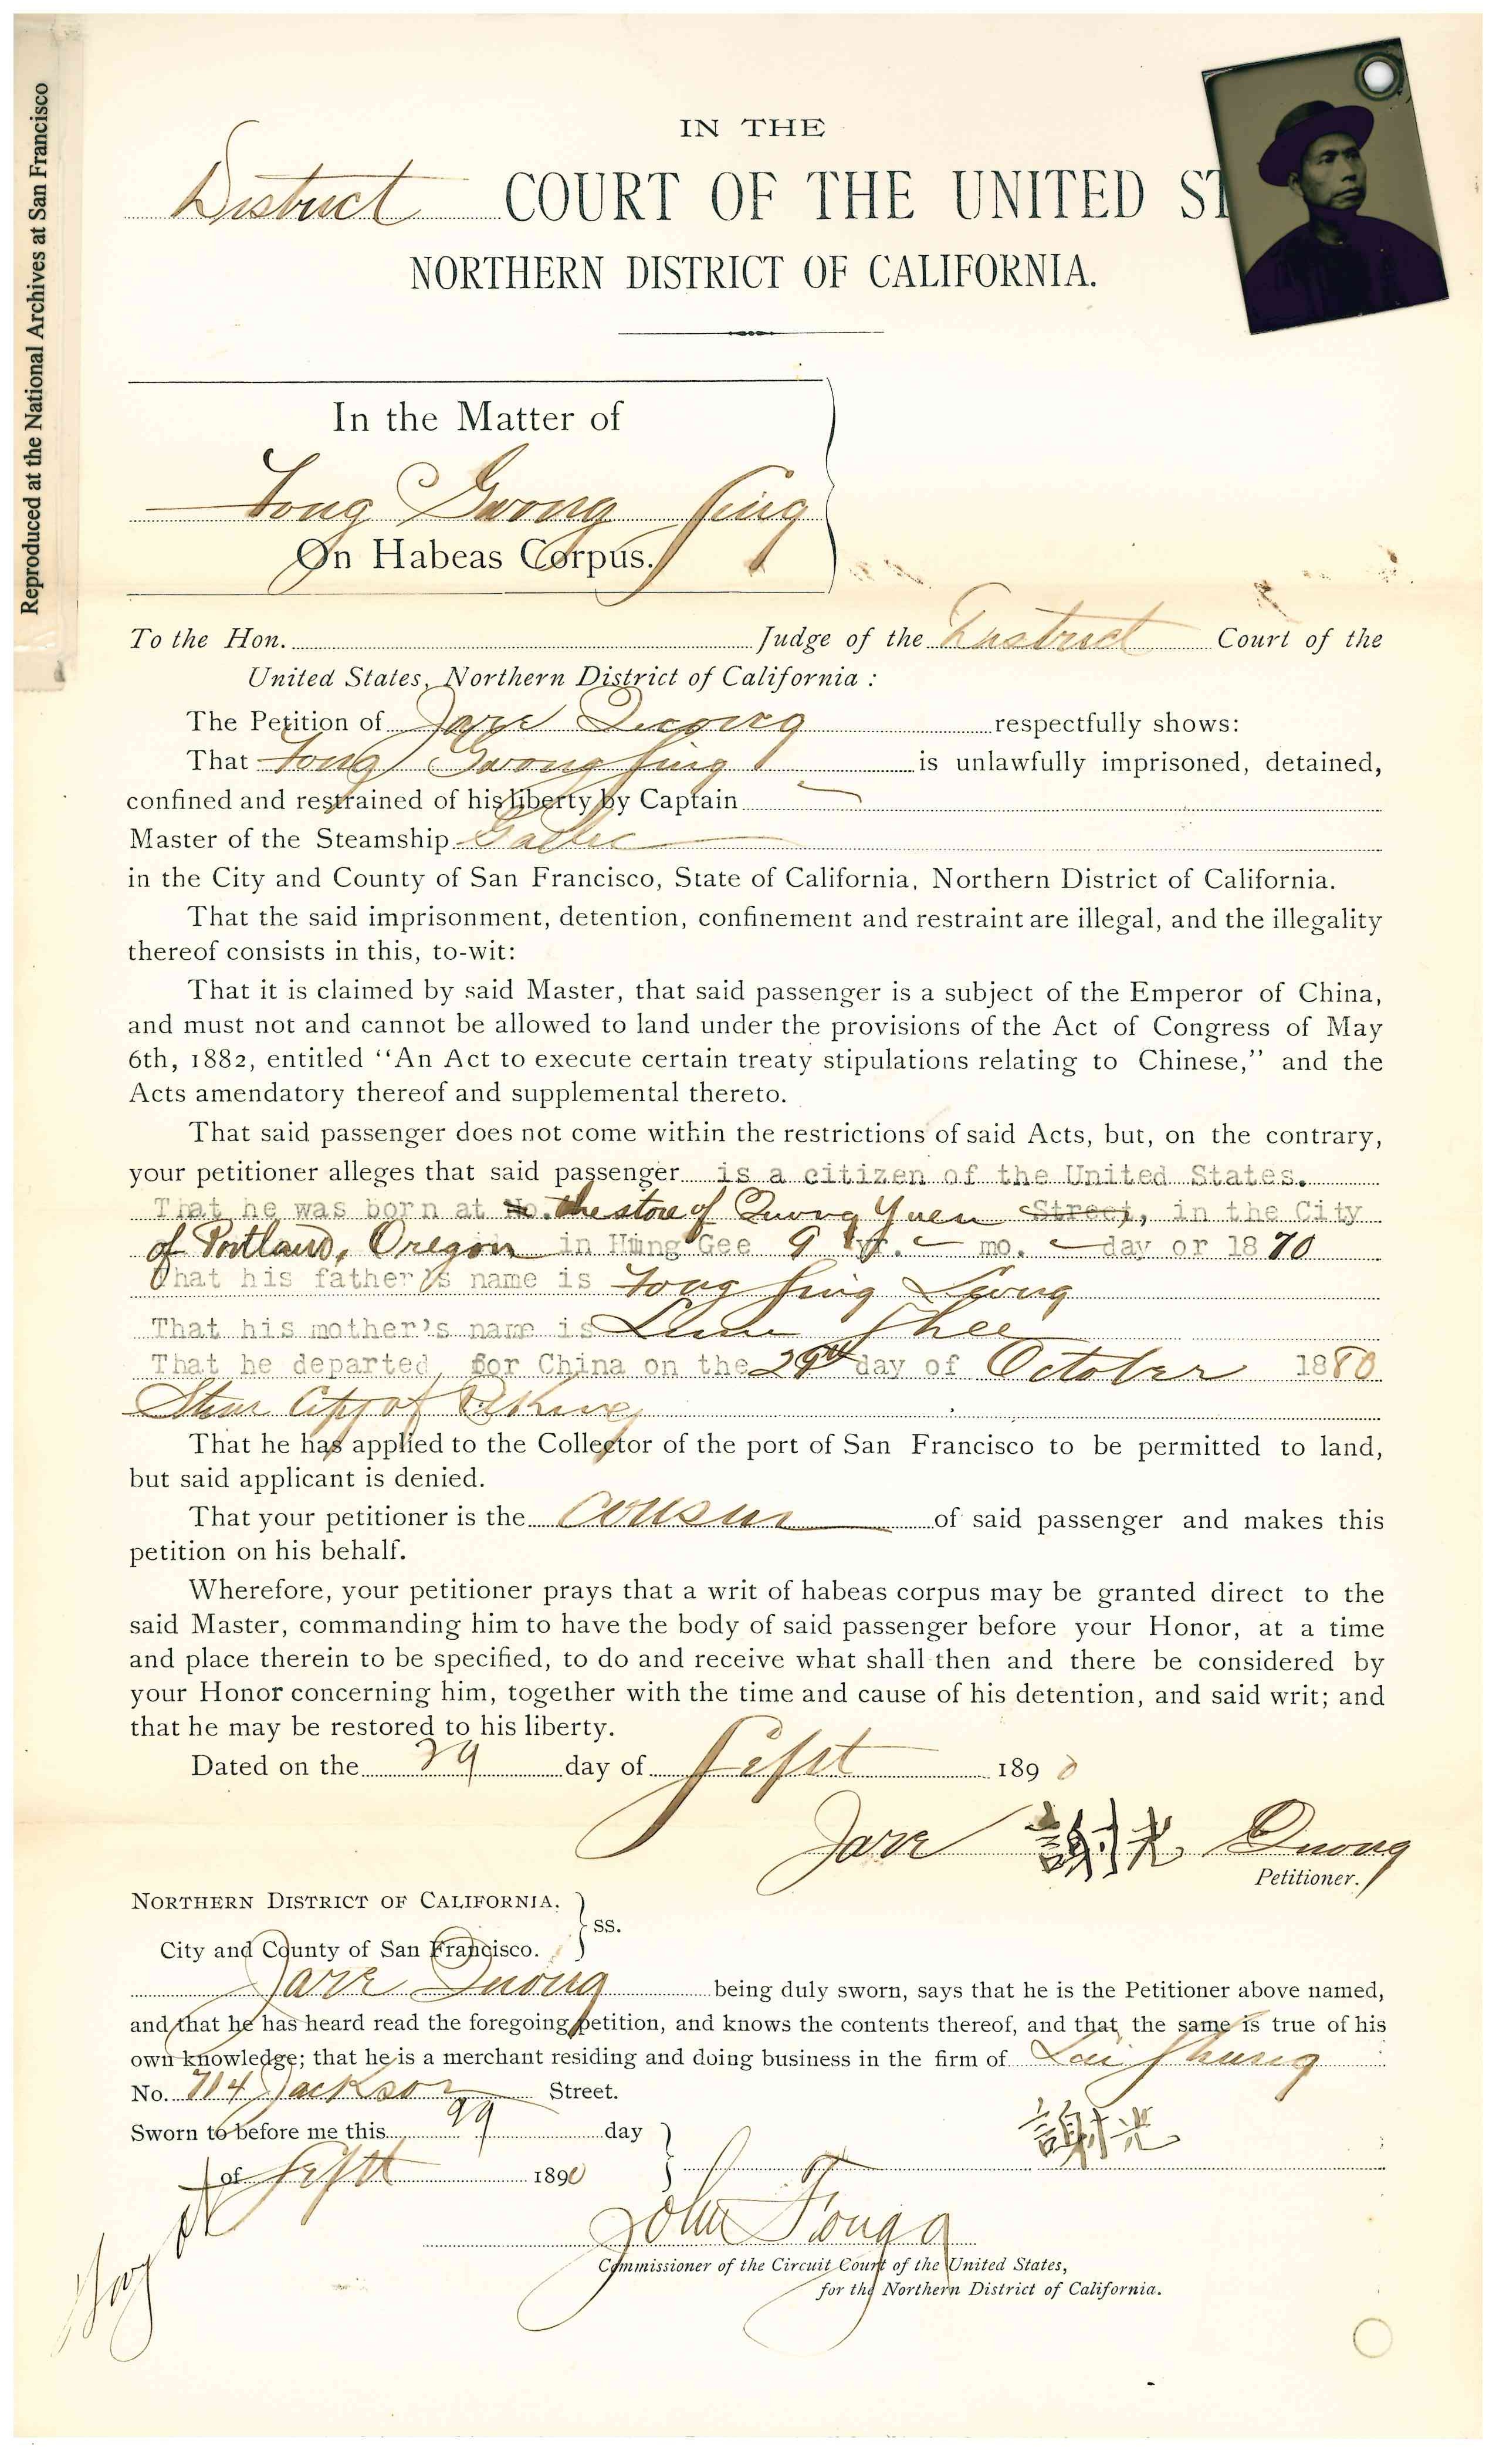 Reproduced at the National Archives at San Francisco
IN THE
District COURT OF THE UNITED ST
NORTHERN DISTRICT OF CALIFORNIA.
In the Matter of
Fong Gwong Sing
On Habeas Corpus.
To the Hon. Judge of the District Court of the
United States, Northern District of California :
The Petition of Jare Quong respectfully shows:
That Fong Gwong Sing is unlawfully imprisoned, detained,
confined and restrained of his liberty by Captain
Master of the Steamship Gaelic
in the City and County of San Francisco, State of California, Northern District of California.
That the said imprisonment, detention, confinement and restraint are illegal, and the illegality
thereof consists in this, to-wit:
That it is claimed by said Master, that said passenger is a subject of the Emperor of China,
and must not and cannot be allowed to land under the provisions of the Act of Congress of May
6th, 1882, entitled “An Act to execute certain treaty stipulations relating to Chinese,” and the
Acts amendatory thereof and supplemental thereto.
That said passenger does not come within the restrictions of said Acts, but, on the contrary,
your petitioner alleges that said passenger is a citizen of the United States.
That he was born at No. the store of Quong Yuen Street, in the City
of Portland, Oregon in Hung Gee 9 yr. - mo. - day or 1870
That his father's name is Fong Sing Leung
That his mother's name is Lum Shee
That he departed for China on the 29th day of October 1880
Stmr City of Peking
That he has applied to the Collector of the port of San Francisco to be permitted to land,
but said applicant is denied.
That your petitioner is the cousin of said passenger and makes this
petition on his behalf.
Wherefore, your petitioner prays that a writ of habeas corpus may be granted direct to the
said Master, commanding him to have the body of said passenger before your Honor, at a time
and place therein to be specified, to do and receive what shall then and there be considered by
your Honor concerning him, together with the time and cause of his detention, and said writ; and
that he may be restored to his liberty.
Dated on the 29 day of Sept 1890
Jare 謝光 Quong
Petitioner.
NORTHERN DISTRICT OF CALIFORNIA.
ss.
City and County of San Francisco.
Jare Quong being duly sworn, says that he is the Petitioner above named,
and that he has heard read the foregoing petition, and knows the contents thereof, and that the same is true of his
own knowledge; that he is a merchant residing and doing business in the firm of Lai Shung
No. 714 Jackson Street.
Sworn to before me this 29 day
謝光
of Sept 1890
John Fouga
Commissioner of the Circuit Court of the United States,
for the Northern District of California.